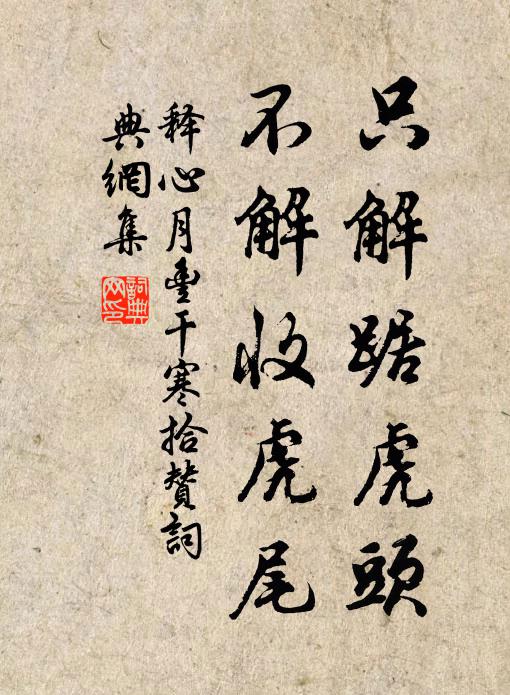 只解踞虎頭
不解收虎尾
释心月豊干寒拾贊詞
典網集
詞典
网印